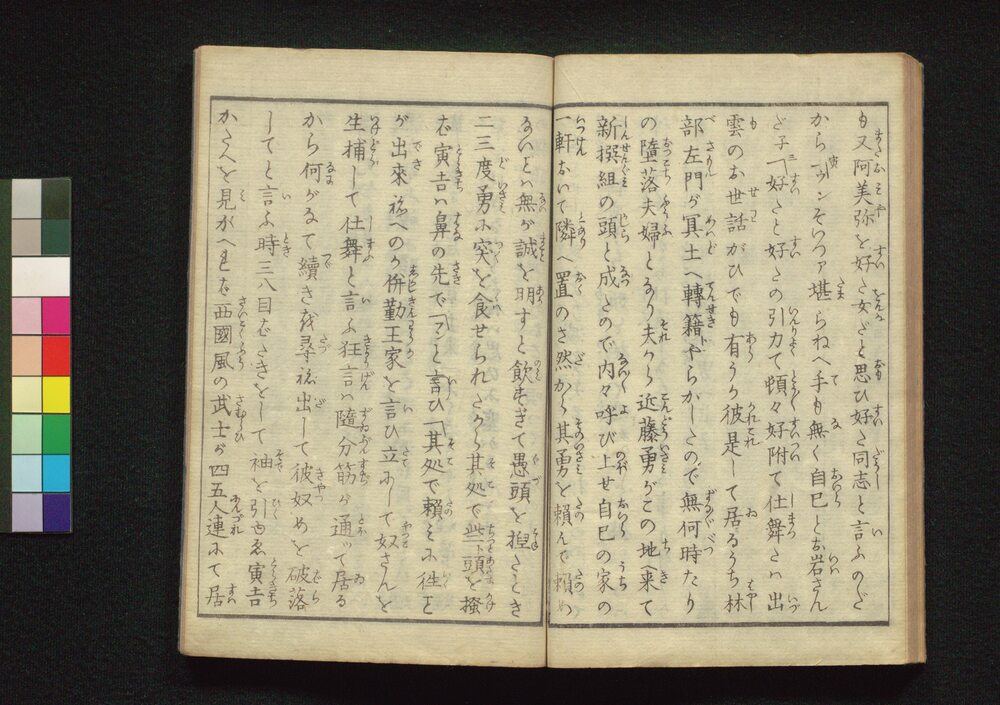 も又阿美弥を好た女だと思ひ好た同志と言ふのだ
から「ウンそいつア堪らねへ手も無く自己とお岩さん
だ子「好たと好たの引力で頓々好附て仕舞さハ出
雲のお世話がひでも有うか彼是して居るうち林
部左門が冥土へ轉籍やらかしたので無何時たり
の墮落夫婦となり夫から近藤勇がこの地へ来て
新撰組の頭と成たので内々呼び上せ自己の家の
一軒おいて隣へ置のさ然から其勇を頼んで頼め
ないとハ無が誠を明すと飲すぎて愚頭を捏たとき
二三度勇に突を食せられたから其処で些頭を掻
バ寅吉ハ鼻の先で「フンと言ひ「其処で頼みに徃と
が出來ねへのか併勤王家を言ひ立にして奴さんを
生捕して仕舞と言ふ狂言ハ隨分筋が通ツて居る
から何がなて續きを尋ね出して彼奴めを破落
してと言ふ時三八目だたきをして袖を引ゆゑ寅吉
かたへを見かへれバ西國風の武士が四五人連にて居